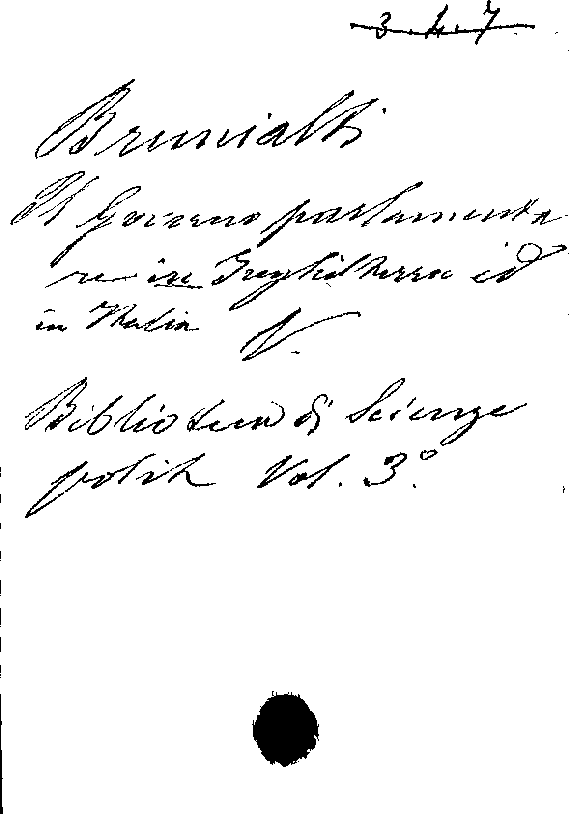 3.4.7
Brunialti
Il Governo parlamenta
re in Inghilterra ed
in Italia V.
Biblioteca di Scienze
polit Vol. 3°.